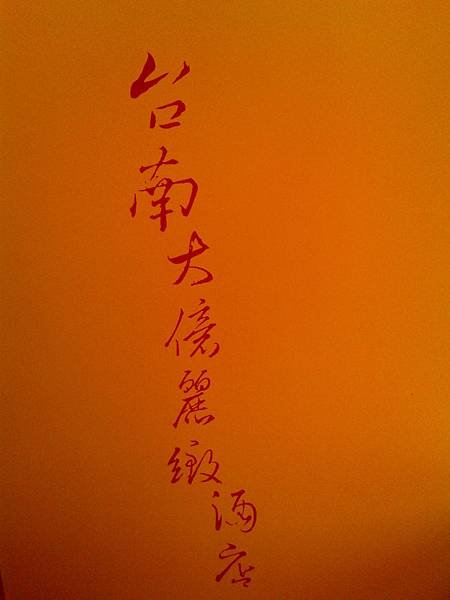 台南大億麗緻酒店